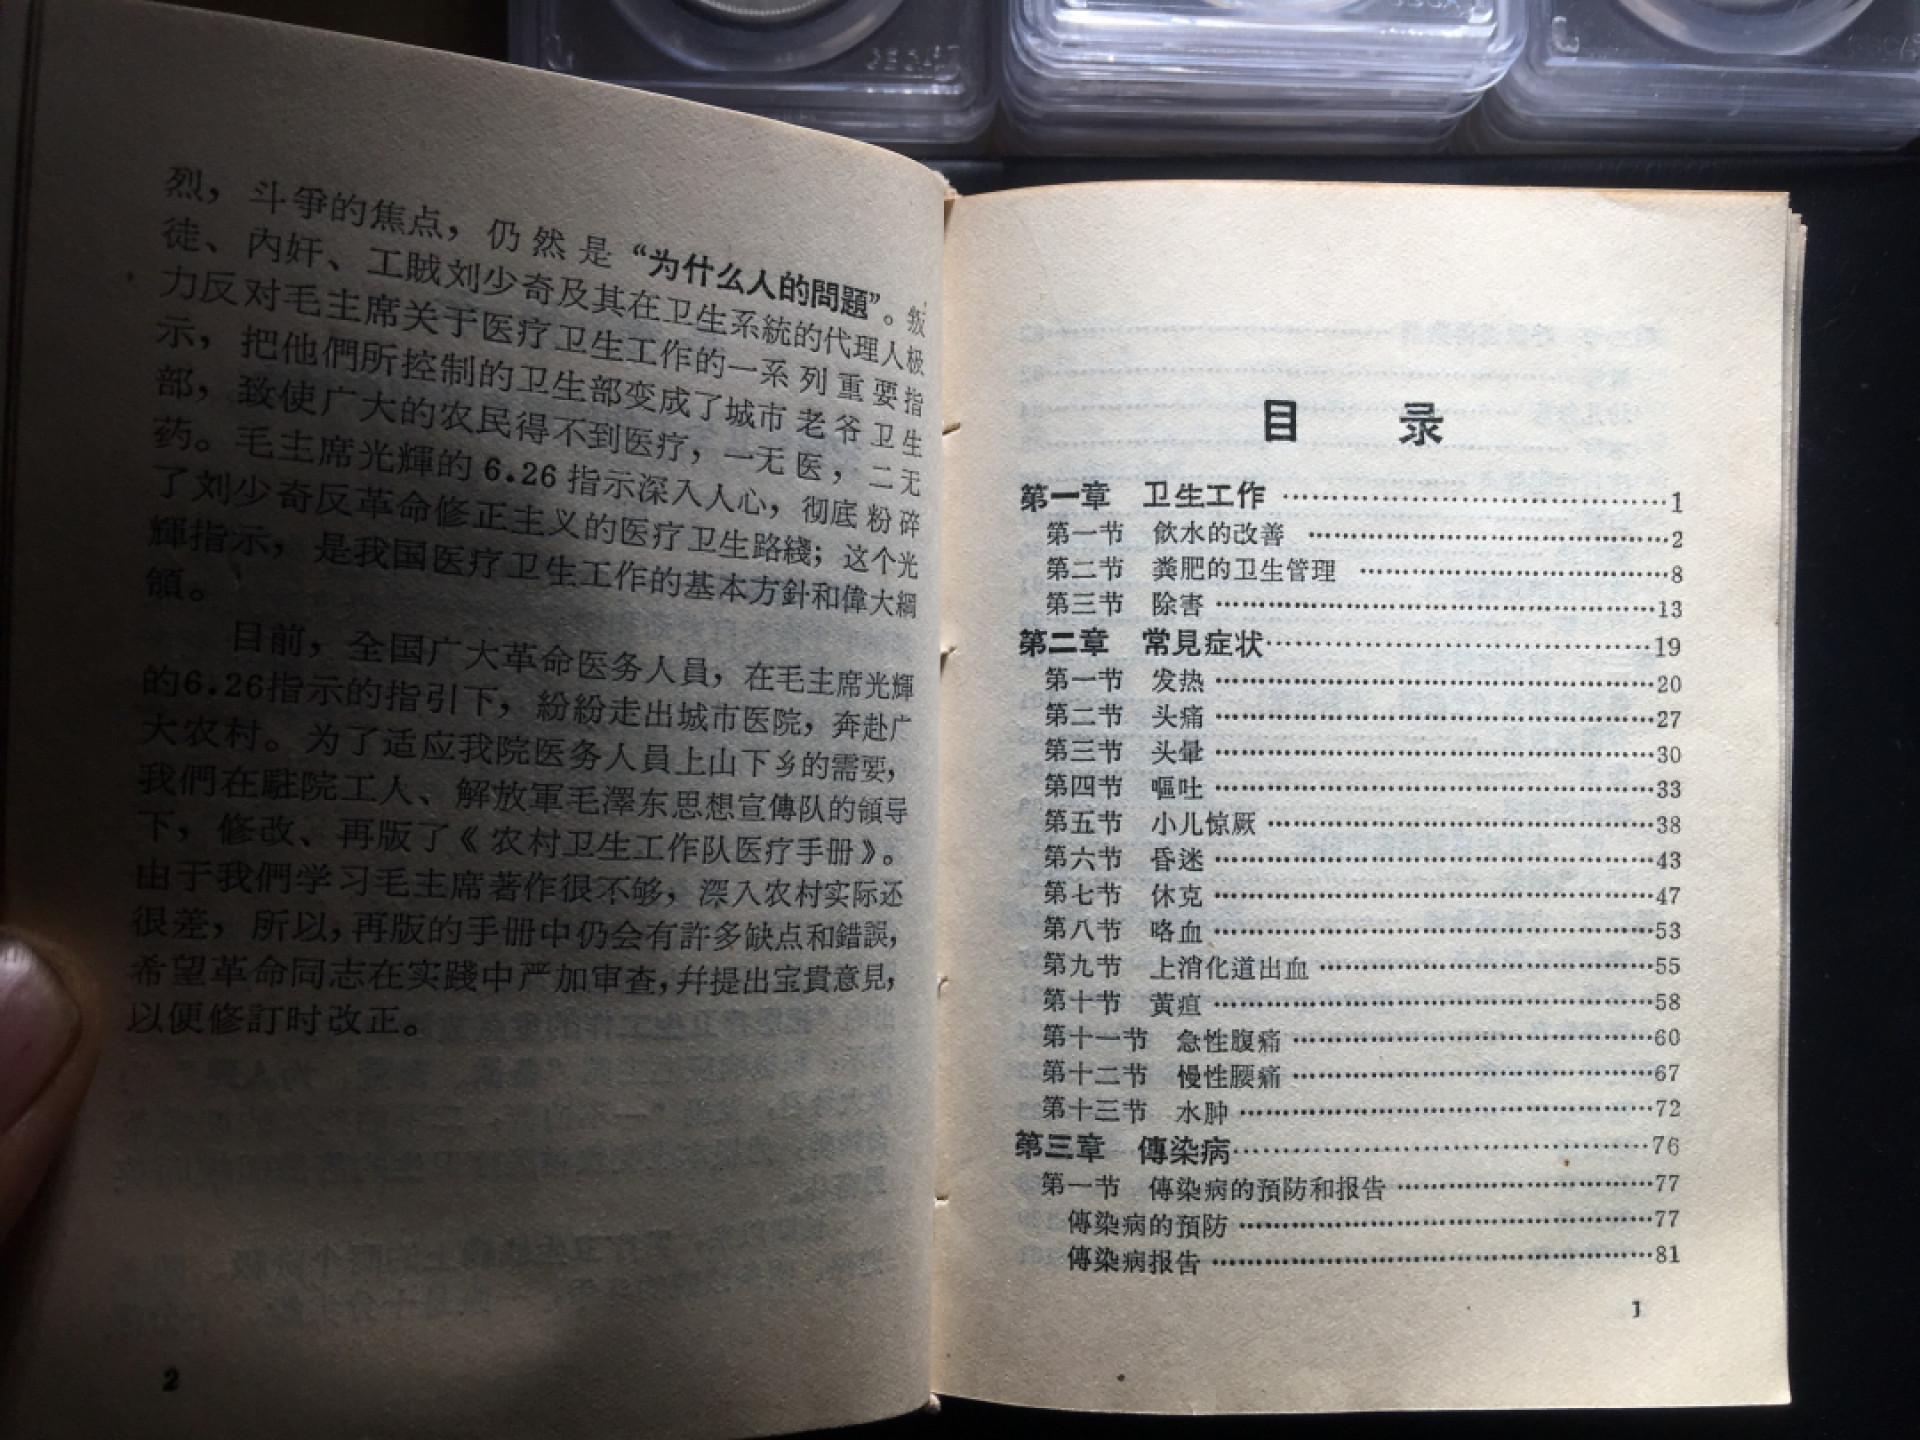 烈，斗爭的焦点，仍然是“为什么人的問題”。叛
徒、內奸、工賊刘少奇及其在卫生系統的代理人极
力反对毛主席关于医疗卫生工作的一系列重要指
示，把他們所控制的卫生部变成了城市老爷卫生
部，致使广大的农民得不到医疗，一无医，二无
药。毛主席光輝的6.26指示深入人心，彻底粉碎
了刘少奇反革命修正主义的医疗卫生路綫；这个光
輝指示，是我国医疗卫生工作的基本方針和偉大綱
領。
目前，全国广大革命医务人員，在毛主席光輝
的6.26指示的指引下，紛紛走出城市医院，奔赴广
大农村。为了适应我院医务人員上山下乡的需要，
我們在駐院工人、解放軍毛澤东思想宣傳队的領导
下，修改、再版了《农村卫生工作队医疗手册》。
由于我們学习毛主席著作很不够，深入农村实际还
很差，所以，再版的手册中仍会有許多缺点和錯誤，
希望革命同志在实践中严加审查，幷提出宝貴意見，
以便修訂时改正。
2
目 录
第一章 卫生工作 ……1
第一节 飲水的改善 ……2
第二节 粪肥的卫生管理 ……8
第三节 除害 ……13
第二章 常見症状 ……19
第一节 发热 ……20
第二节 头痛 ……27
第三节 头暈 ……30
第四节 嘔吐 ……33
第五节 小儿惊厥 ……38
第六节 昏迷 ……43
第七节 休克 ……47
第八节 咯血 ……53
第九节 上消化道出血 ……55
第十节 黃疸 ……58
第十一节 急性腹痛 ……60
第十二节 慢性腰痛 ……67
第十三节 水肿 ……72
第三章 傳染病 ……76
第一节 傳染病的預防和报告 ……77
傳染病的預防 ……77
傳染病报告 ……81
1